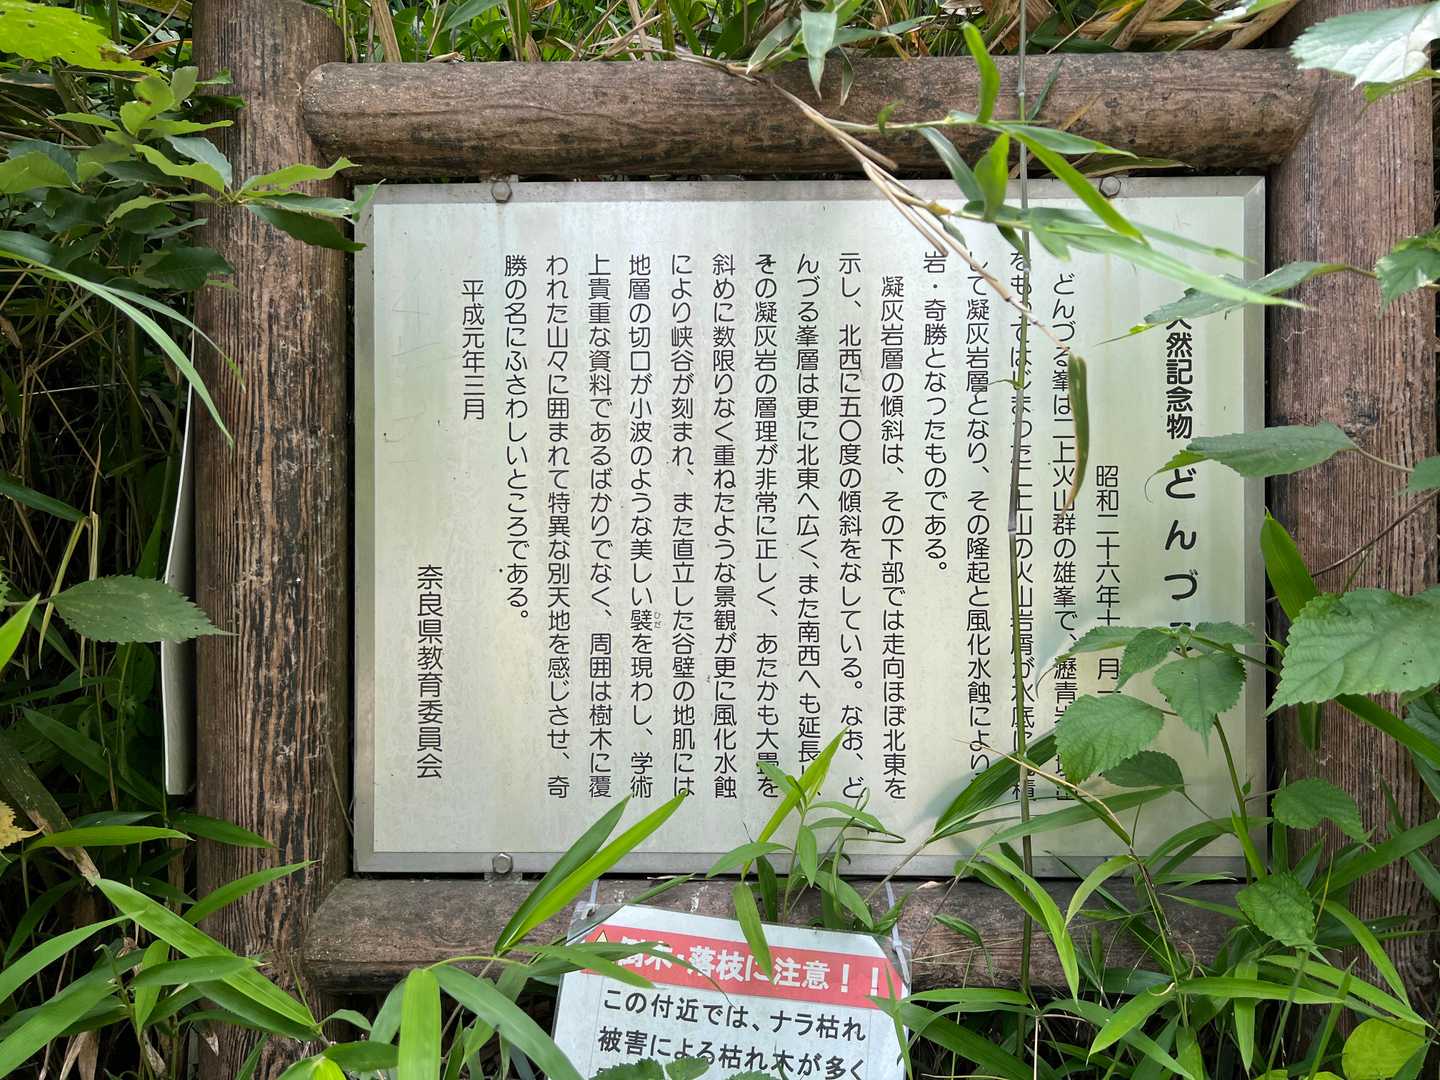 天然記念物 どんづ
昭和二十六年十 月一
どんづる峯は二上火山群の雄峯で、瀝青
るものではじまった二上山の火山岩屑が水底に 積
して凝灰岩層となり、その隆起と風化水蝕により
岩・奇勝となつたものである。
凝灰岩層の傾斜は、その下部では走向ほぼ北東を
示し、北西に五〇度の傾斜をなしている。なお、ど
んづる峯層は更に北東へ広く、また南西へも延長し、
その凝灰岩の層理が非常に正しく、あたかも大畳を
斜めに数限りなく重ねたような景観が更に風化水蝕
により峡谷が刻まれ、また直立した谷壁の地肌には
地層の切口が小波のような美しい襞を現わし、学術
上貴重な資料であるばかりでなく、周囲は樹木に覆
われた山々に囲まれて特異な別天地を感じさせ、奇
勝の名にふさわしいところである。
平成元年三月
奈良県教育委員会
倒木・落枝に注意！！
この付近では、ナラ枯れ
被害による枯れ木が多く